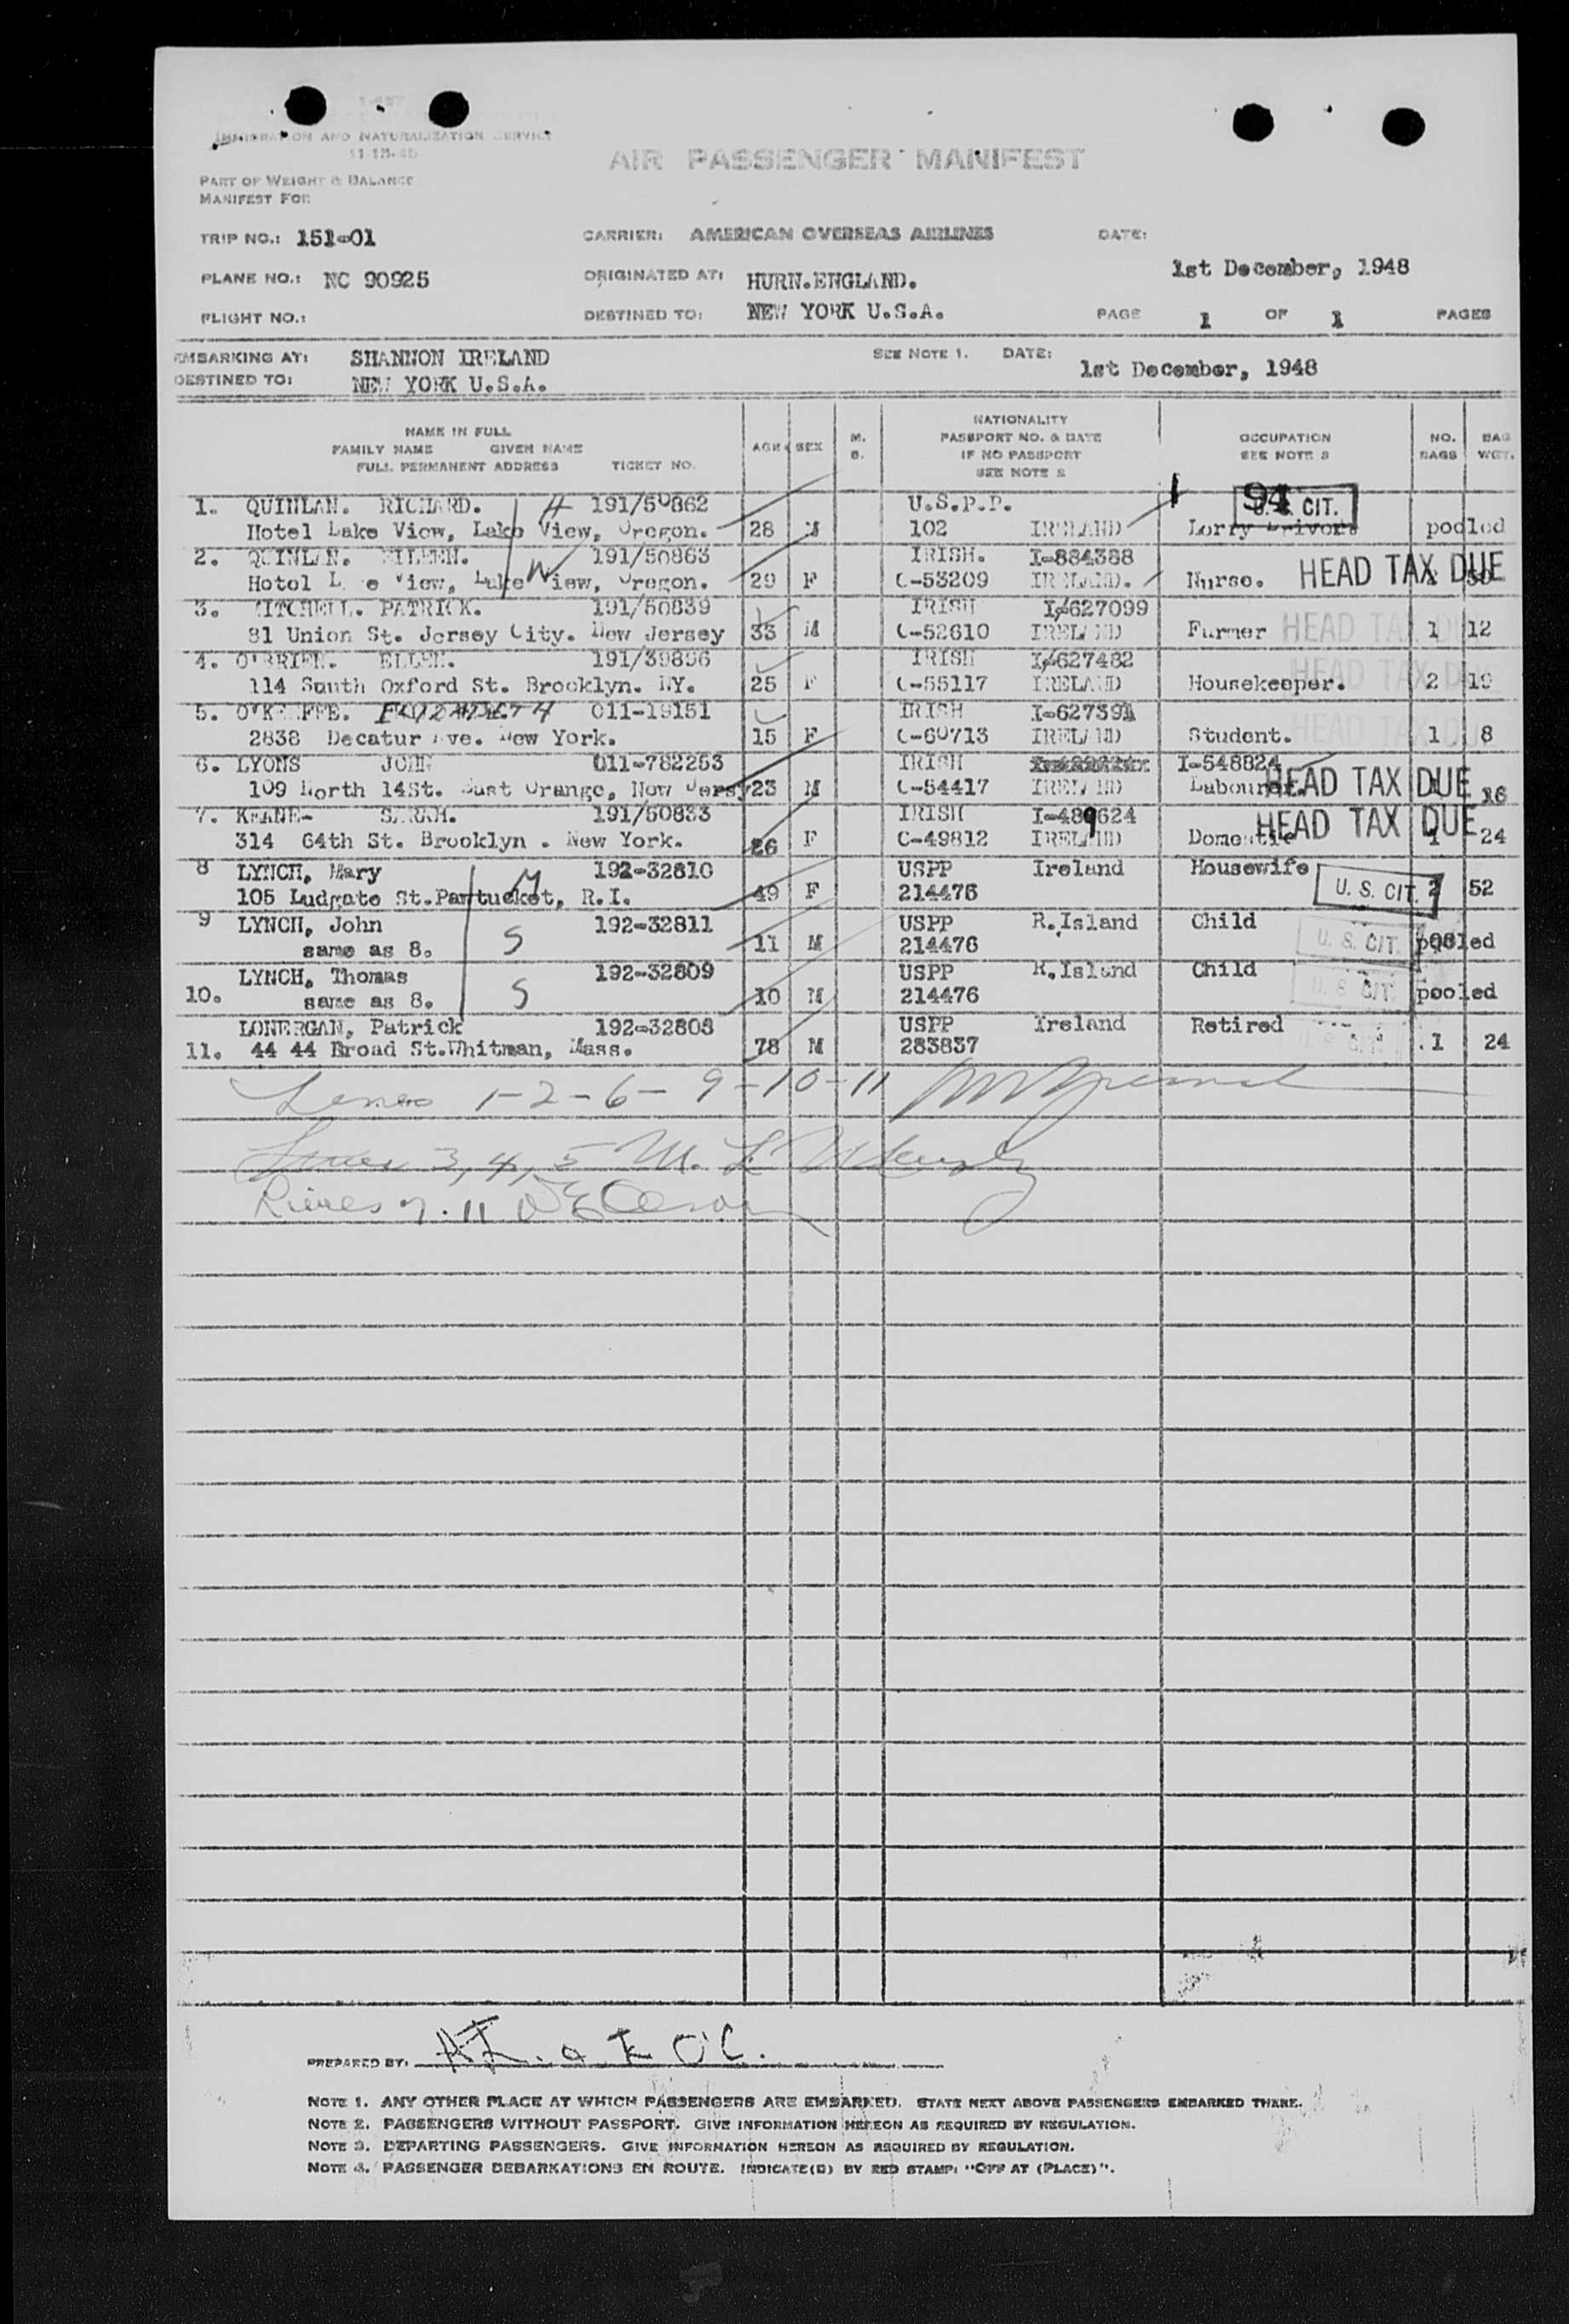 IMMIGRATION AND NATURALIZATION SERVICE
11-15-45
AIR PASSENGER MANIFEST
PART OF WEIGHT & BALANCE
MANIFEST FOR
TRIP NO.: 151-01 CARRIER: AMERICAN OVERSEAS AIRLINES DATE:
1st December, 1948
PLANE NO.: NC 90925 ORIGINATED AT: HURN.ENGLAND.
FLIGHT NO.: DESTINED TO: NEW YORK U.S.A. PAGE 1 OF 1 PAGES
EMBARKING AT: SHANNON IRELAND SEE NOTE 1. DATE: 1st December, 1948
DESTINED TO: NEW YORK U.S.A.
NAME IN FULL
FAMILY NAME GIVEN NAME
FULL PERMANENT ADDRESS TICKET NO.
AGE SEX M. S.
NATIONALITY
PASSPORT NO. & DATE
IF NO PASSPORT
SEE NOTE 2
OCCUPATION
SEE NOTE 3
NO. BAGS
BAG WGT.
1. QUINLAN. RICHARD. H 191/50862 U.S.P.P. 1 94 U.S. CIT.
Hotel Lake View, Lake View, Oregon. 28 M 102 IRELAND Lorry Drivers pooled
2. QUINLAN. EILEEN. W 191/50863 IRISH. I-884388
Hotel Lake View, Lake View, Oregon. 29 F C-53209 IRELAND. Nurse. HEAD TAX DUE
3. MITCHELL. PATRICK. 191/50839 IRISH I-627099
81 Union St. Jersey City. New Jersey 33 M C-52610 IRELAND Farmer HEAD TAX DUE 1 12
4. O'BRIEN. ELLEN. 191/39896 IRISH I-627482
114 South Oxford St. Brooklyn. NY. 25 F C-55117 IRELAND Housekeeper. HEAD TAX DUE 2 19
5. O'KEEFFE. 011-19151 IRISH I-627391
2838 Decatur Ave. New York. 15 F C-60713 IRELAND Student. HEAD TAX DUE 1 8
6. LYONS JOHN 011-782253 IRISH I-548824
109 North 14St. East Orange, New Jersy 23 M C-54417 IRELAND Labourer. HEAD TAX DUE 16
7. KEANE- SARAH. 191/50833 IRISH I-489624
314 64th St. Brooklyn . New York. 26 F C-49812 IRELAND Domestic HEAD TAX DUE 1 24
8 LYNCH, Mary M 192-32810 USPP Ireland Housewife
105 Ludgate St.Pawtucket, R.I. 49 F 214476 U. S. CIT. 2 52
9 LYNCH, John S 192-32811 USPP R.Island Child
same as 8. 11 M 214476 U. S. CIT. pooled
LYNCH, Thomas S 192-32809 USPP R.Island Child
10. same as 8. 10 M 214476 U. S. CIT. pooled
LONERGAN, Patrick 192-32808 USPP Ireland Retired
11. 44 44 Broad St.Whitman, Mass. 78 M 283837 U. S. CIT. 1 24
Lines 1-2-6- 9-10-11
Lines 3, 4, 5 M. L.
Lines 7. 11
PREPARED BY:
NOTE 1. ANY OTHER PLACE AT WHICH PASSENGERS ARE EMBARKED. STATE NEXT ABOVE PASSENGERS EMBARKED THERE.
NOTE 2. PASSENGERS WITHOUT PASSPORT. GIVE INFORMATION HEREON AS REQUIRED BY REGULATION.
NOTE 3. DEPARTING PASSENGERS. GIVE INFORMATION HEREON AS REQUIRED BY REGULATION.
NOTE 4. PASSENGER DEBARKATIONS EN ROUTE. INDICATE(D) BY RED STAMP: "OFF AT (PLACE)".